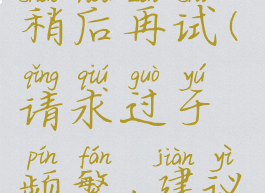 稍后再试(
qǐng qiú guò yú
请求过于
pín fán jiàn yì
频繁，建议